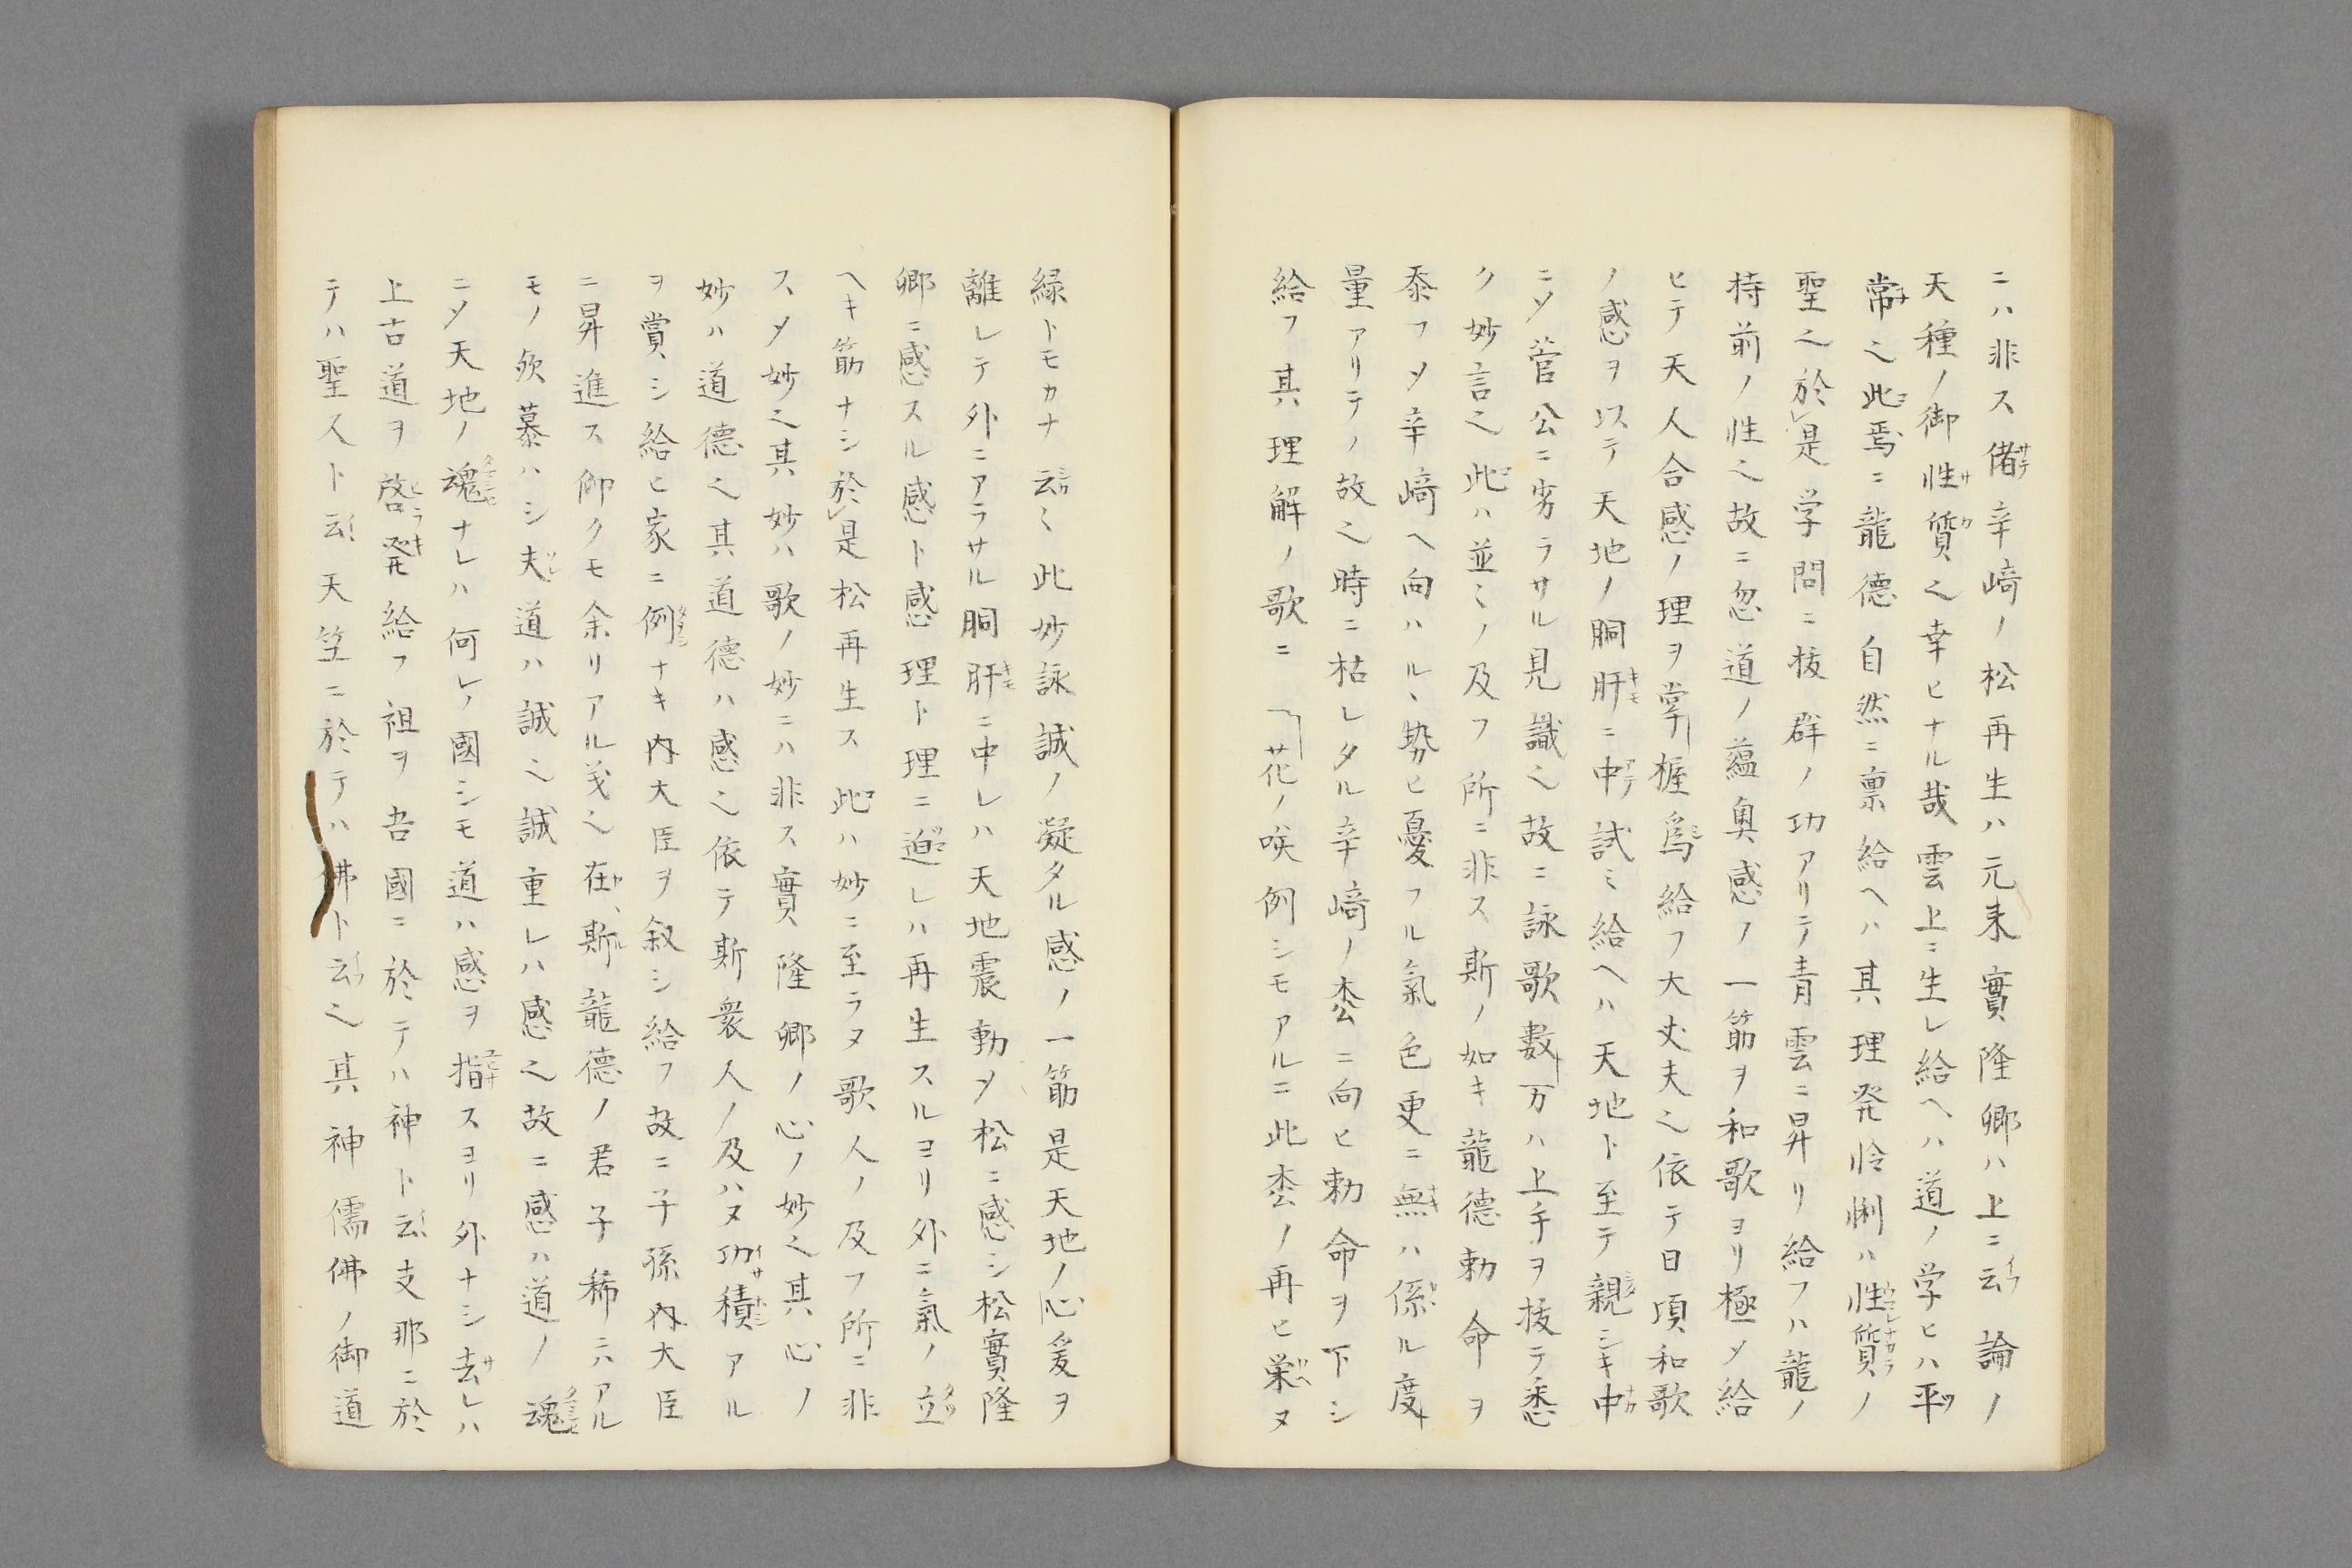 ニハ非ス偖辛﨑ノ松再生ハ元来實隆卿ハ上ニ云論ノ
天種ノ御性質之幸ヒナル哉雲上ニ生レ給ヘハ道ノ学ヒハ平
常之此焉ニ龍德自然ニ禀給ヘハ其理発怜悧ハ性質ノ
聖之於是学問ニ抜群ノ功アリテ青雲ニ昇リ給フハ龍ノ
持前ノ性之故ニ忽道ノ蘊奥感ノ一筋ヲ和歌ヨリ極メ給
ヒテ天人合感ノ理ヲ掌握爲給フ大丈夫之依テ日頃和歌
ノ感ヲ以テ天地ノ胴肝ニ中試ミ給ヘハ天地ト至テ親シキ中
ニメ菅公ニ劣ラサル見識之故ニ詠歌數万ハ上手ヲ抜テ悉
ク妙言之此ハ並ミノ及フ所ニ非ス斯ノ如キ龍德勅命ヲ
泰フメ辛﨑ヘ向ハル丶勢ヒ憂フル氣色更ニ無ハ係ル度
量アリテノ故之時ニ枯レタル辛﨑ノ枩ニ向ヒ勅命ヲ下シ
給フ其理解ノ歌ニ「花ノ咲例シモアルニ此枩ノ再ヒ栄ヌ
緑トモカナ云々此妙詠誠ノ凝タル感ノ一筋是天地ノ心爰ヲ
離レテ外ニアラサル胴肝ニ中レハ天地震動メ松ニ感シ松實隆
卿ニ感スル感ト感理ト理ニ迫レハ再生スルヨリ外ニ氣ノ立
ヘキ筋ナシ於是松再生ス此ハ妙ニ至ラヌ歌人ノ及フ所ニ非
スメ妙之其妙ハ歌ノ妙ニハ非ス實隆卿ノ心ノ妙之其心ノ
妙ハ道德之其道德ハ感之依テ斯衆人ノ及ハヌ功積アル
ヲ賞シ給ヒ家ニ例ナキ内大臣ヲ叙シ給フ故ニ子孫内大臣
ニ昇進ス仰クモ余リアル義之在斯龍德ノ君子稀ニハアル
モノ欤慕ハシ夫道ハ誠之誠重レハ感之故ニ感ハ道ノ魂
ニメ天地ノ魂ナレハ何レノ國シモ道ハ感ヲ指スヨリ外ナシ去レハ
上古道ヲ啓発給フ祖ヲ吾國ニ於テハ神ト云支那ニ於
テハ聖人ト云天竺ニ於テハ佛ト云之其神儒佛ノ御道